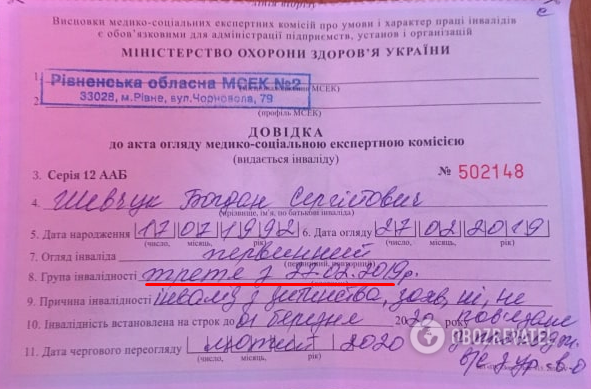 ЛІНІЯ ВІДРІЗУ
Висновки медико-соціальних експертних комісій про умови і характер праці інвалідів
є обов'язковими для адміністрації підприємств, установ і організацій
МІНІСТЕРСТВО ОХОРОНИ ЗДОРОВ'Я УКРАЇНИ
1.
Рівненська обласна МСЕК №2
33028, м.Рівне, вул.Чорновола, 79
2.
(профіль МСЕК)
ДОВІДКА
до акта огляду медико-соціальною експертною комісією
(видається інваліду)
3. Серія 12 ААБ № 502148
4. Шевчук Богдан Сергійович
(прізвище, ім'я, по батькові інваліда)
5. Дата народження 17 07 1992 6. Дата огляду 27 02 2019
(число, місяць, рік) (число, місяць, рік)
7. Огляд інваліда первинний
(первинний, повторний)
8. Група інвалідності третя з 27.02.2019р.
9. Причина інвалідності інвалід з дитинства, захв, ні, не
10. Інвалідність встановлена на строк до 01 березня 2020 року пов'язане
OBOZREVATEL
11. Дата чергового переогляду лютий 2020
(число, місяць, рік)